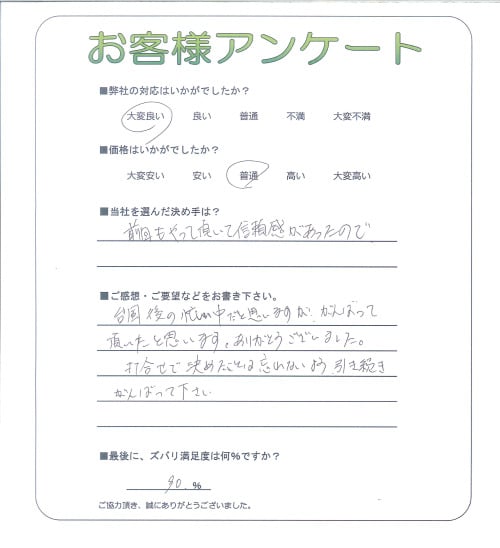 お客様アンケート
■弊社の対応はいかがでしたか？
大変良い 良い 普通 不満 大変不満
■価格はいかがでしたか？
大変安い 安い 普通 高い 大変高い
■当社を選んだ決め手は？
前回もやって頂いて信頼感があったので
■ご感想・ご要望などをお書き下さい。
台風後の忙しい中だと思いますが、がんばって
頂いたと思います。ありがとうございました。
打合せで決めたことは忘れないよう引き続き
がんばって下さい
■最後に、ズバリ満足度は何％ですか？
90.％
ご協力頂き、誠にありがとうございました。